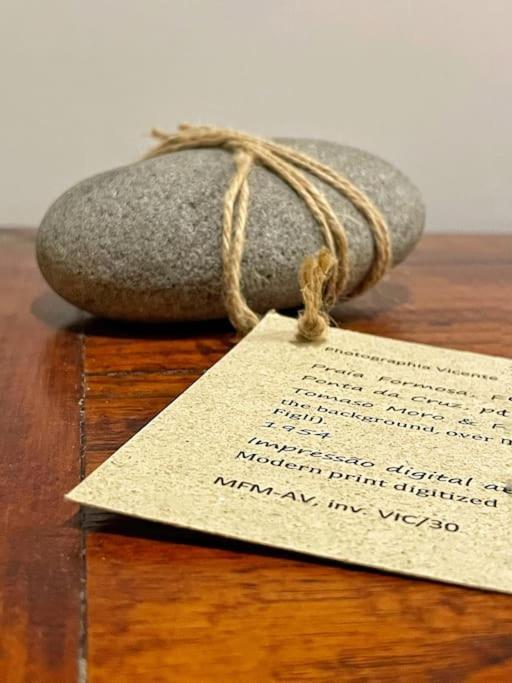 Photographia Vicente
Praia Formosa.
Ponta da Cruz, pd
Tomaso Moro & F
the background, over m
Figli).
1954
Impressão digital a
Modern print digitized
MFM-AV, inv. VIC/30